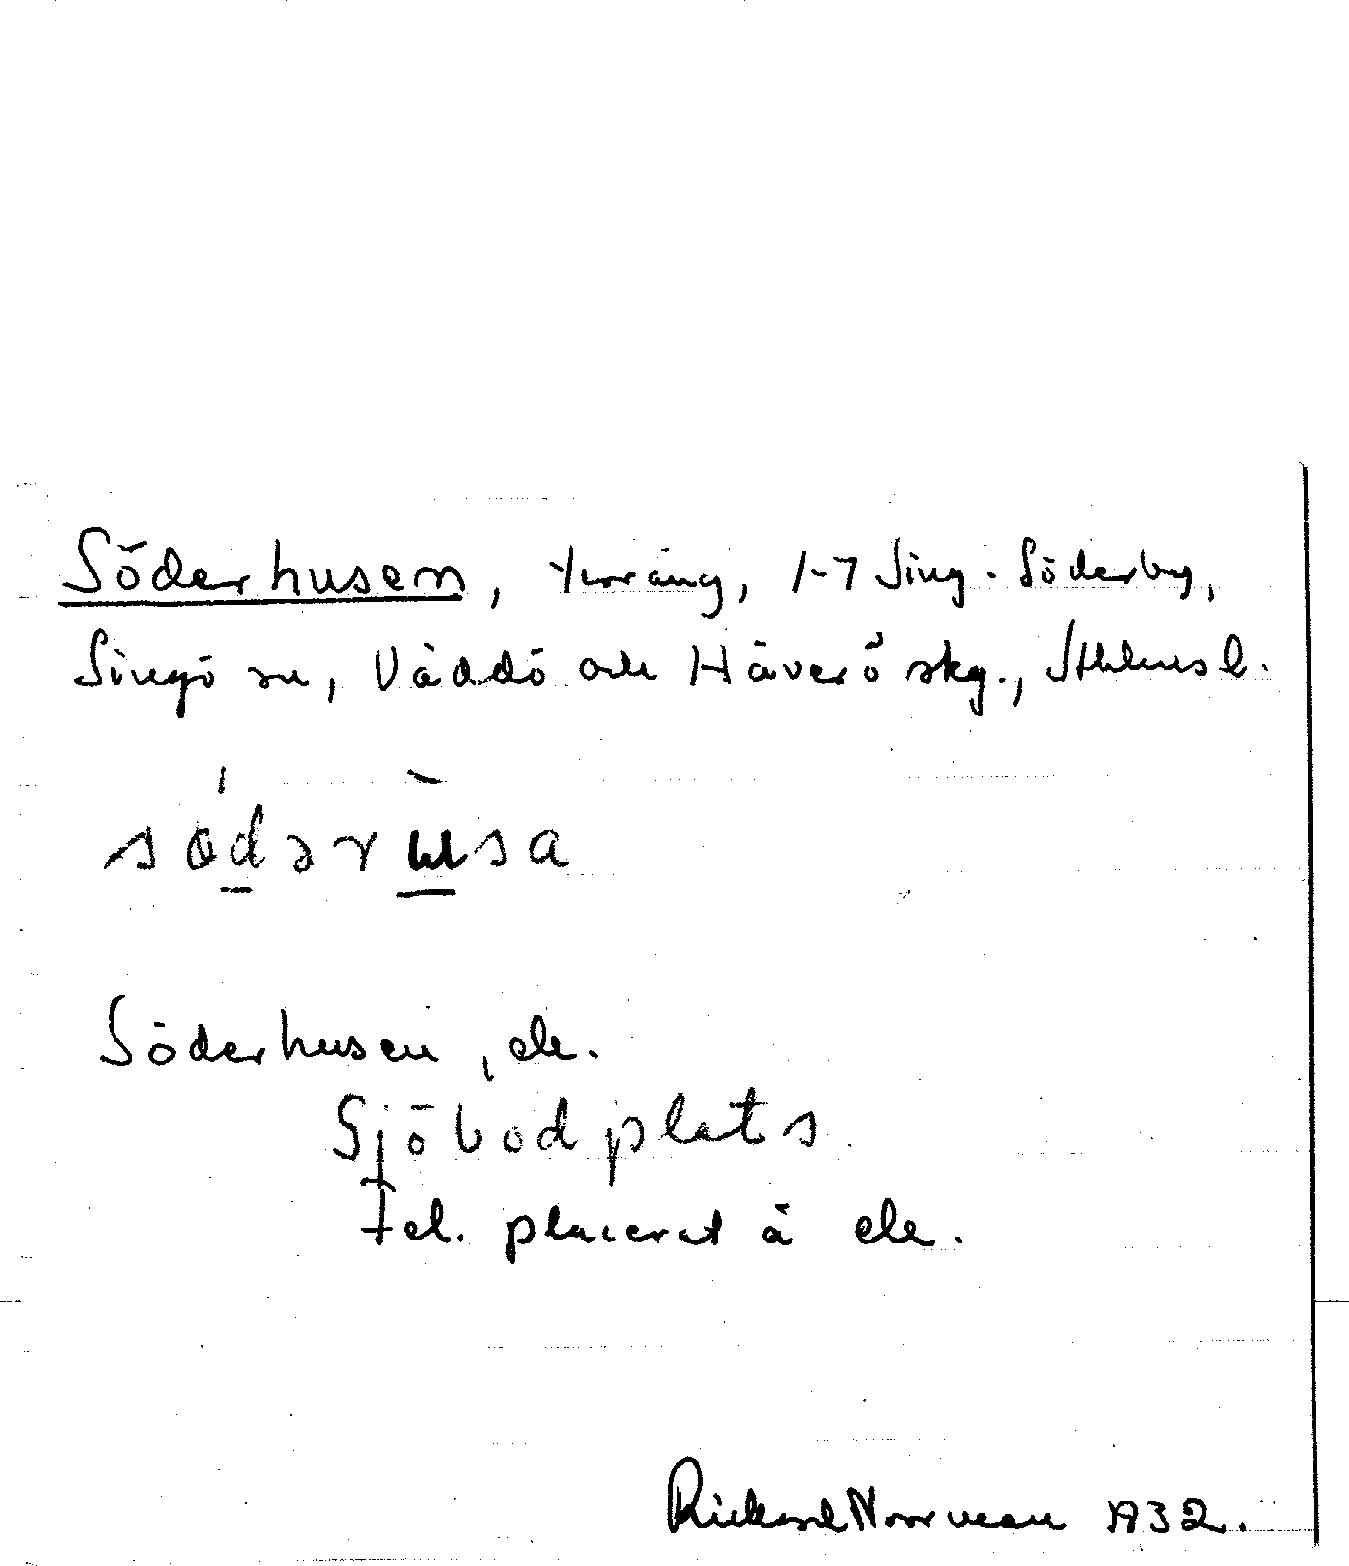 Söderhusen, terräng, 1-7 Sing-Söderby,
Singö sn, Väddö och Häverö skg., Sthlms l.
södərusa
Söderhusen, ek.
Sjöbodplats
Fel. placerat å ek.
Rickard Norrman 1932.